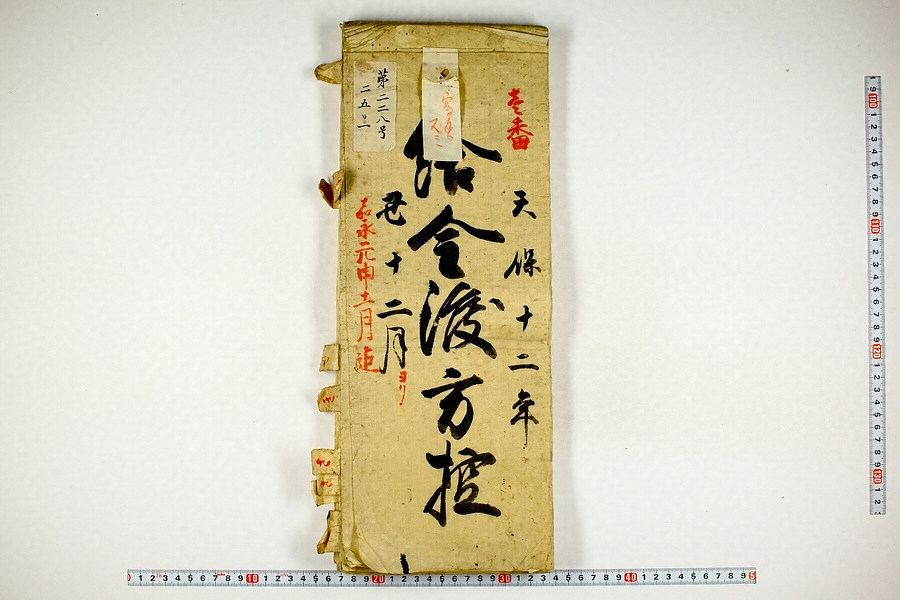 壱番
天保十二年
給金渡方控
写真スミ
丑十二月ヨリ
嘉永元申十二月迄
第二二八号